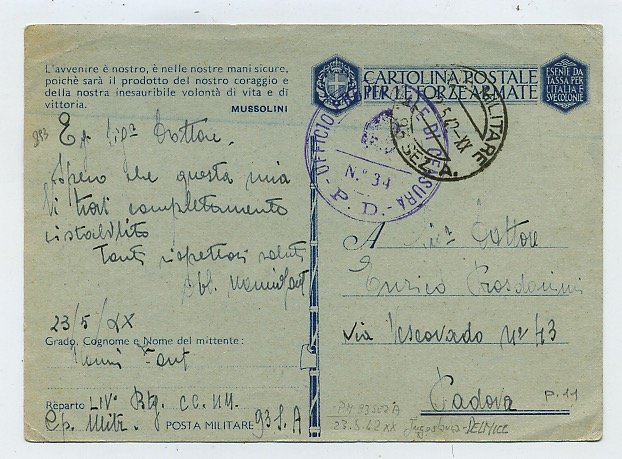 L'avvenire è nostro, è nelle nostre mani sicure,
poichè sarà il prodotto del nostro coraggio e
della nostra inesauribile volontà di vita e di
vittoria.
MUSSOLINI
Eg. Sig. Dottore.
Spero che questa mia
la trovi completamente
ristabilito
Tanti rispettosi saluti
23/5/XX
Grado, Cognome e Nome del mittente:
Reparto LIV° Btg. CC. NN.
Cp. Mitr. POSTA MILITARE 93 S. A
CARTOLINA POSTALE
PER LE FORZE ARMATE
ESENTE DA
TASSA PER
L'ITALIA E
SUE COLONIE
UFFICIO CENSURA
N.° 34
P. D.
MILITARE
SEZ. A.
A Sig. Dottore
Enrico Prosdocimi
via Vescovado n° 43
Padova
P. 11
PM 93 SEZ A
23.5.42 XX Jugoslavia - DELNICE